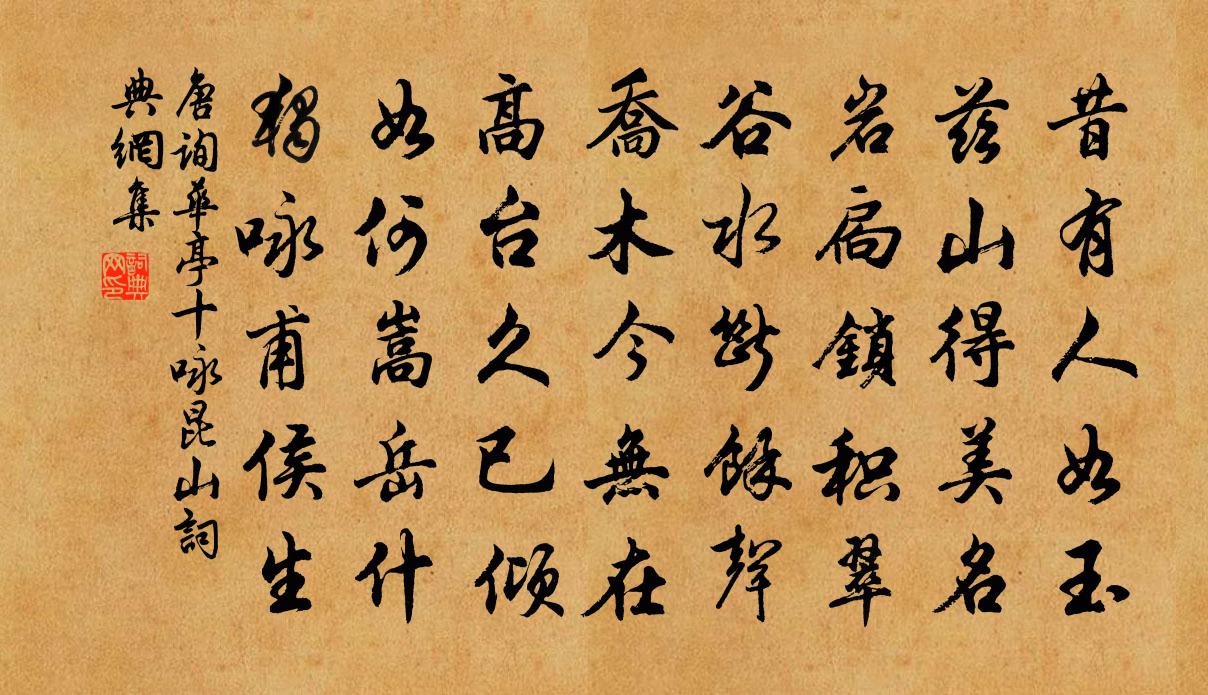 昔有人如玉
兹山得美名
岩扃鎖积翠
谷水斷餘聲
喬木今無在
高台久已傾
如何嵩岳什
獨咏甫侯生
唐詢華亭十咏昆山詞
典網集
詞典網印